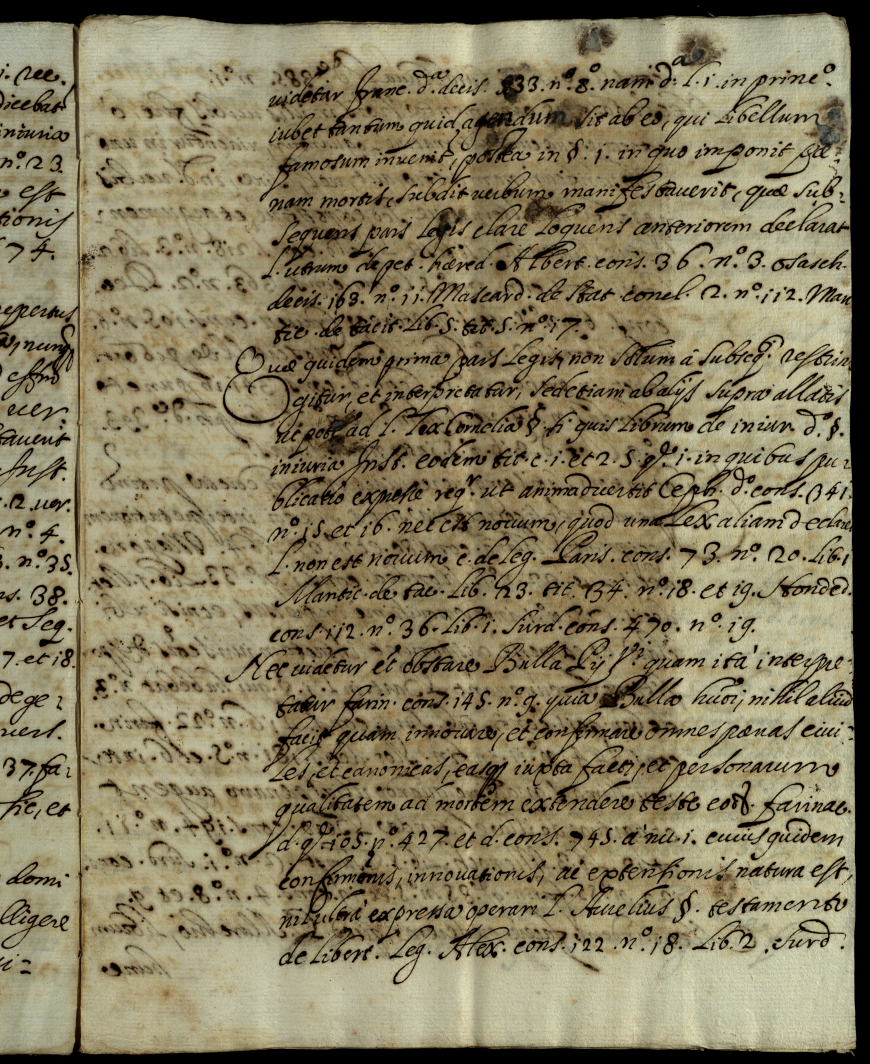 i. Rec.
dicebat
iniuria
n.º 23.
est
tionis
74.
repertus
uer
tauerit
Inst.
.2. uer.
n.º 4.
. n.º 35.
ns. 38.
et Seq.
7. et 18.
dege=
uers.
37. fa=
fic, et
domi
lligere
ui=
uidetur Franc. d.ª decis. 533. n.º 8.º nam d.ª l. 1. in princ.º
iubet tantum quid agendum sit ab eo, qui Libellum
famosum inuenit, postea in §. 1. in quo imponit pæ=
nam mortis, subdit uerbum manifestauerit, quæ sub=
sequens pars Legis clare Loquens anteriorem declarat
l. utrum de pet. hæred. Albert. cons. 36. n.º 3. Osasch.
decis. 163. n.º 11. Mascard. de stat. concl. 2. n.º 112. Man
tic. de tacit. Lib. 5. tit. 5. n.º 17.
Quæ quidem prima pars Legis, non solum à subseq.ⁱ restrin
gitur, et interpretatur, sed etiam ab alijs supra allatis
ut pote ad l. Lex Cornelia § si quis Librum de iniur. d.º §.
iniuria Inst. eodem tit. c. 1. et 2. 5. q. 1. in quibus pu=
blicatio expresse req.ʳ ut animaduertit Ceph. d.º cons. 341.
n.º 15. et 16. nec est nouum, quod una Lex aliam declaret
l. non est nouum c. de leg. Paris. cons. 73. n.º 20. Lib. 1
Mantic. de tac. Lib. 23. tit. 34. n.º 18. et 19. Honded.
cons. 112. n.º 36. Lib. 1. Surd. cons. 470. n.º 19.
Nec uidetur et obstare Bulla Pij Vⁱ quam ita interpre=
tatur Farin. cons. 145. n.º 9. quia Bulla huõi, nihil aliud
facit quam innouare, et confirmare omnes pænas ciui=
les, et canonicas, easq; iuxta facti, et personarum
qualitatem ad mortem extendere teste eod. Farinac.
d. q. 105. n.º 427. et d. cons. 745. a nu. 1. cuius quidem
confirmõnis, innouationis, ac extensionis natura est,
nil ultra expressa operari l. Aurelius §. testamento
de Libert. Leg. Alex. cons. 122. n.º 18. Lib. 2. Surd.